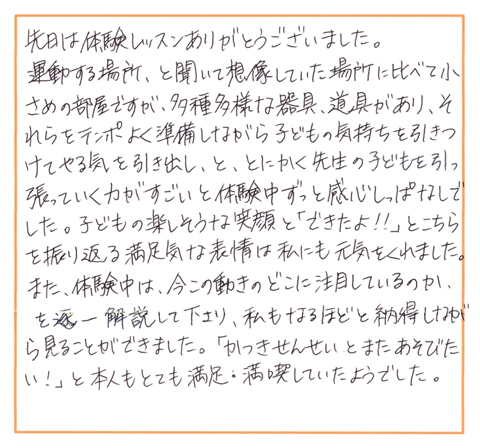 先日は体験レッスンありがとうございました。
運動する場所、と聞いて想像していた場所に比べて小
さめの部屋ですが、多種多様な器具、道具があり、そ
れらをテンポよく準備しながら子どもの気持ちを引きつ
けてやる気を引き出し、と、とにかく先生の子どもを引っ
張っていく力がすごいと体験中ずっと感心しっぱなしで
した。子どもの楽しそうな笑顔と「できたよ!!」とこちら
を振り返る満足気な表情は私にも元気をくれました。
また、体験中は、今この動きのどこに注目しているのか、
を逐一解説して下さり、私もなるほどと納得しなが
ら見ることができました。「かつきせんせいとまたあそびた
い!」と本人もとても満足・満喫していたようでした。